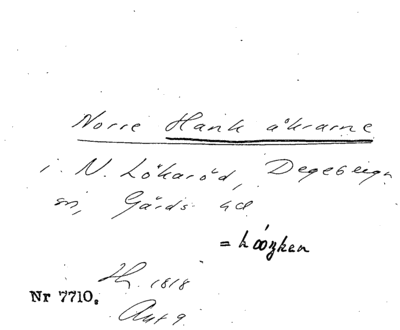 Norre Hank åkrarne
i N. Lökaröd, Degeberga
sn, Gärds hd
= höözken
1818
Nr 7710.
Akt 9